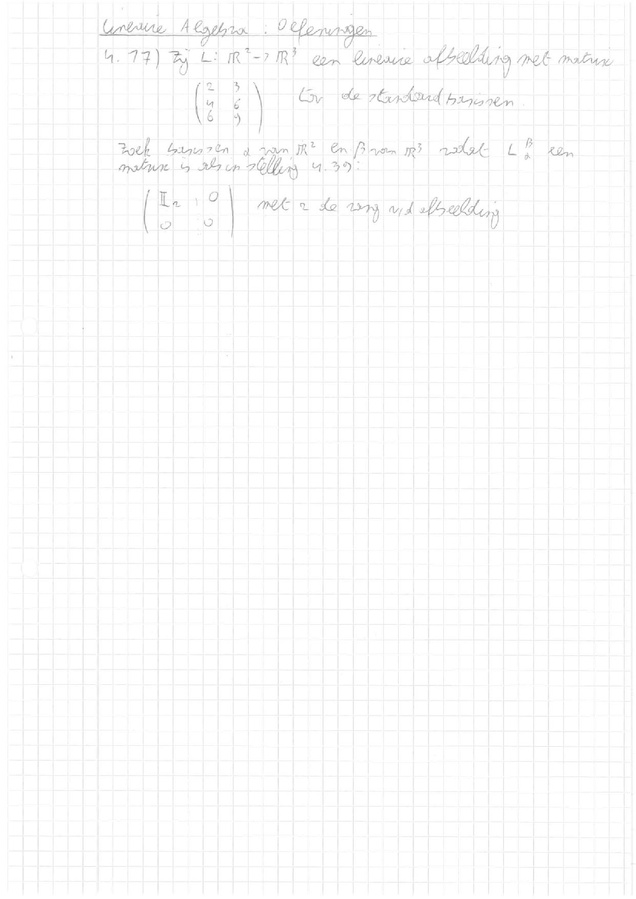 Lineaire Algebra : Oefeningen
4.17) Zij L: ℝ² -> ℝ³ een lineaire afbeelding met matrix
( 2 3
4 6
6 9 ) tov de standaard basissen.
Zoek basissen α van ℝ² en β van ℝ³ zodat L_α^β een
matrix is als in stelling 4.39:
( 𝕀r 0
0 0 ) met r de rang v/d afbeelding